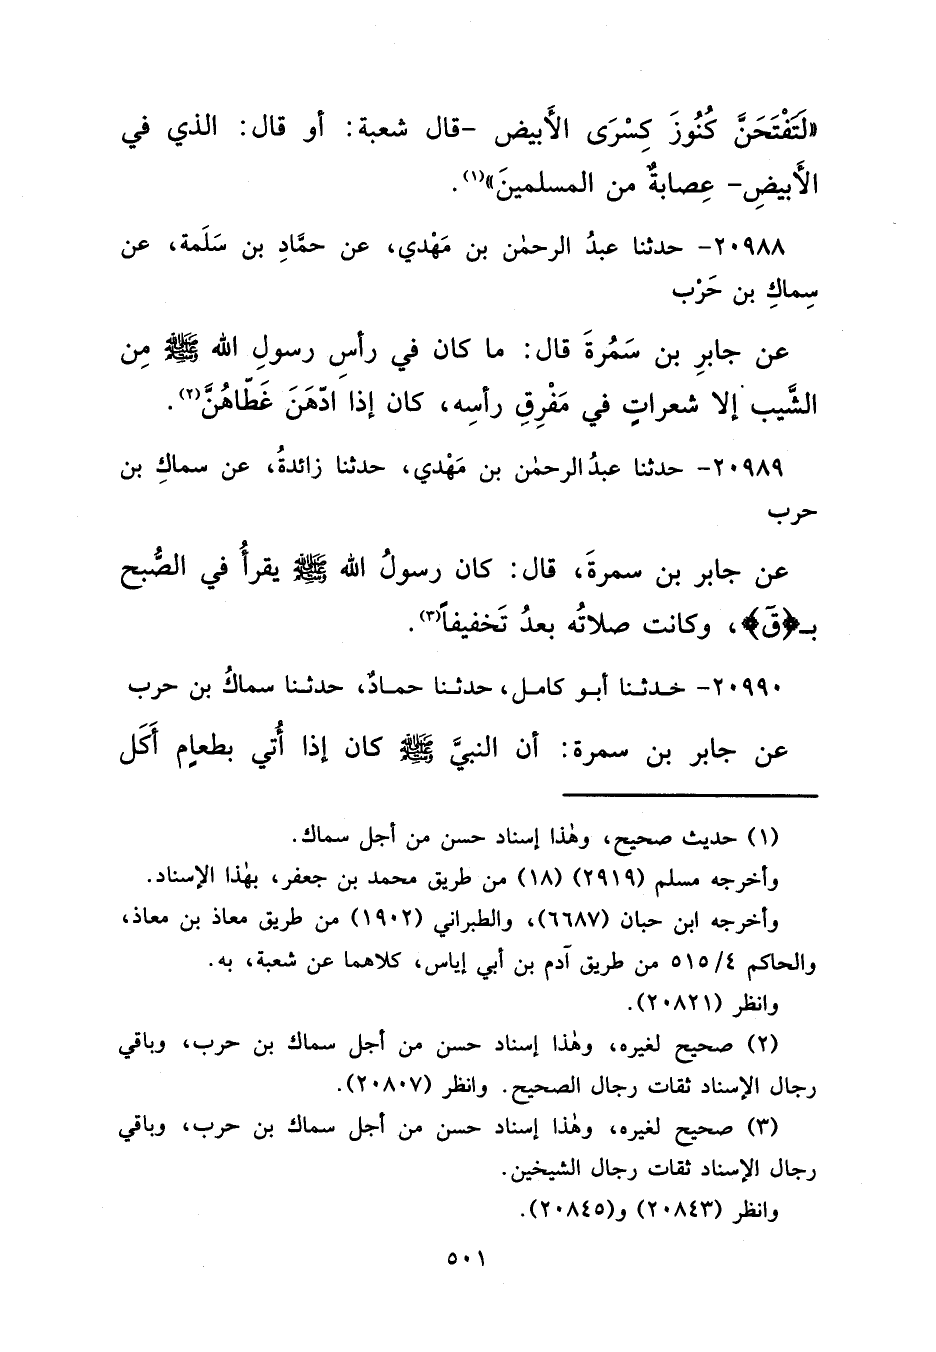 «لَتَفْتَحَنَّ كُنُوزَ كِسْرَى الأَبيض -قال شعبة: أو قال: الذي في
الأَبيضِ- عِصابةٌ من المسلمينَ»(١).
٢٠٩٨٨- حدثنا عبدُ الرحمٰن بن مَهْدي، عن حمَّادِ بن سَلَمة، عن
سِماكِ بن حَرْب
عن جابرِ بن سَمُرةَ قال: ما كان في رأسِ رسولِ الله ﷺ مِن
الشَّيب إلا شعراتٍ في مَفْرِقِ رأسِه، كان إذا ادّهَنَ غَطّاهُنَّ(٢).
٢٠٩٨٩- حدثنا عبدُ الرحمٰن بن مَهْدي، حدثنا زائدةُ، عن سماكِ بن
حرب
عن جابر بن سمرةَ، قال: كان رسولُ الله ﷺ يقرأُ في الصُّبح
بـ﴿قَ﴾، وكانت صلاتُه بعدُ تَخفيفاً(٣).
٢٠٩٩٠- حدثنا أبو كامل، حدثنا حمادٌ، حدثنا سماكُ بن حرب
عن جابر بن سمرة: أن النبيَّ ﷺ كان إذا أُتي بطعامٍ أَكَل
(١) حديث صحيح، وهٰذا إسناد حسن من أجل سماك.
وأخرجه مسلم (٢٩١٩) (١٨) من طريق محمد بن جعفر، بهٰذا الإسناد.
وأخرجه ابن حبان (٦٦٨٧)، والطبراني (١٩٠٢) من طريق معاذ بن معاذ،
والحاكم ٥١٥/٤ من طريق آدم بن أبي إياس، كلاهما عن شعبة، به.
وانظر (٢٠٨٢١).
(٢) صحيح لغيره، وهٰذا إسناد حسن من أجل سماك بن حرب، وباقي
رجال الإسناد ثقات رجال الصحيح. وانظر (٢٠٨٠٧).
(٣) صحيح لغيره، وهٰذا إسناد حسن من أجل سماك بن حرب، وباقي
رجال الإسناد ثقات رجال الشيخين.
وانظر (٢٠٨٤٣) و(٢٠٨٤٥).
٥٠١